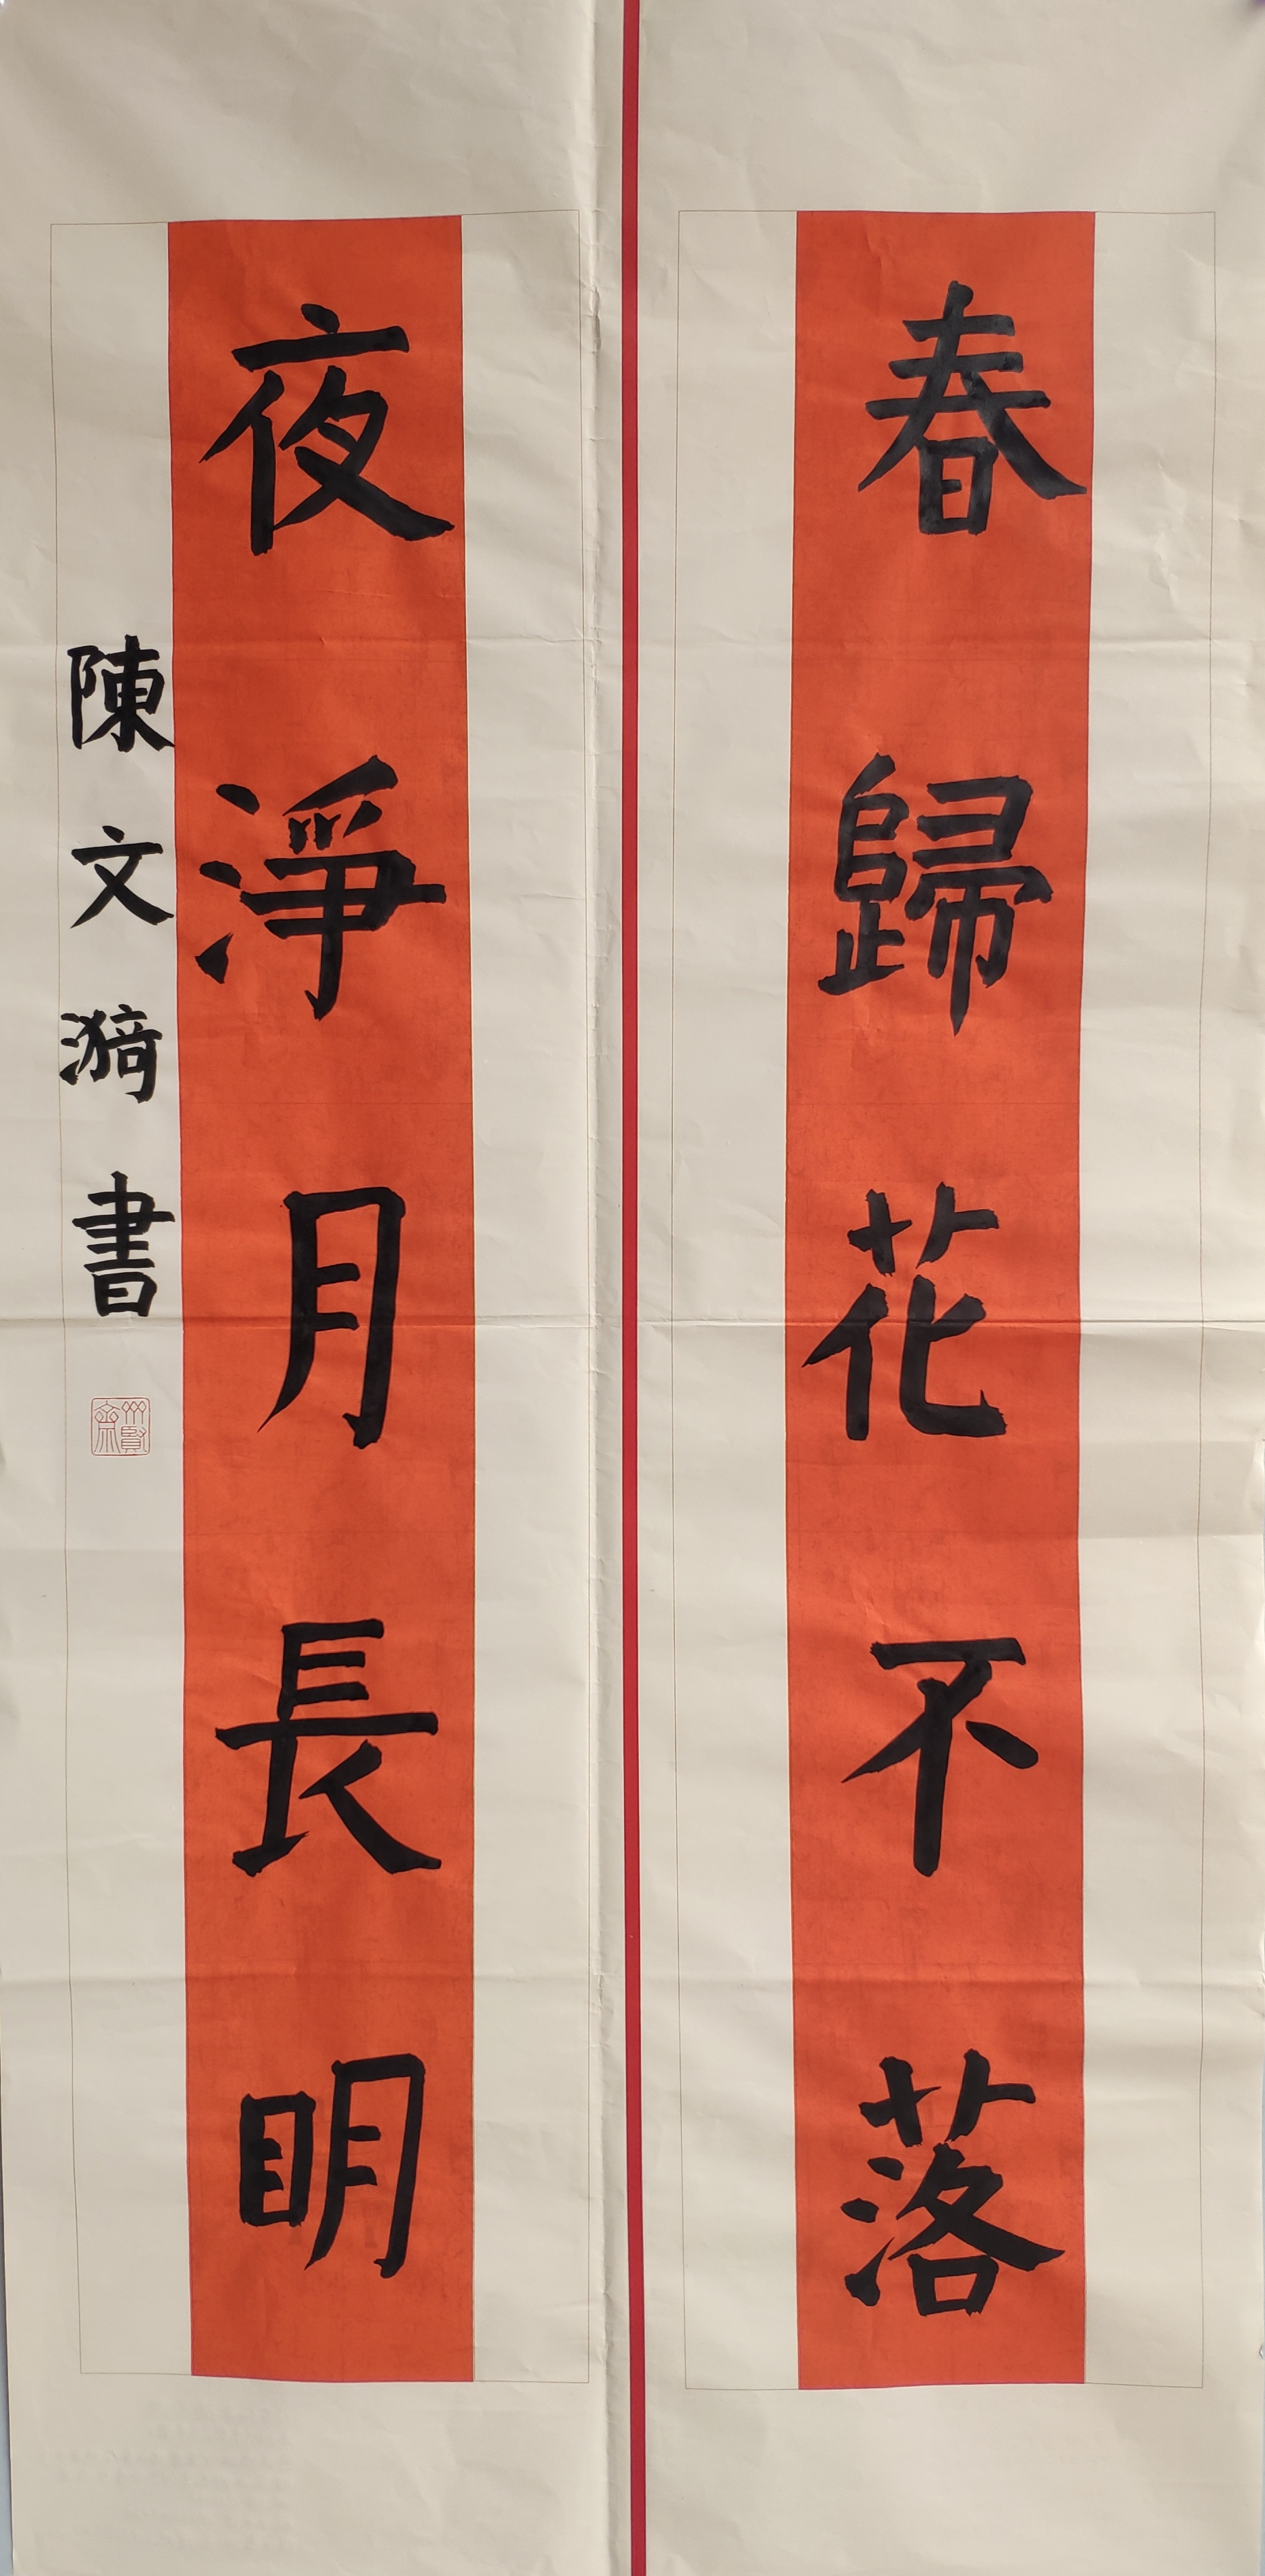 春歸花不落
夜淨月長明
陳文漪書